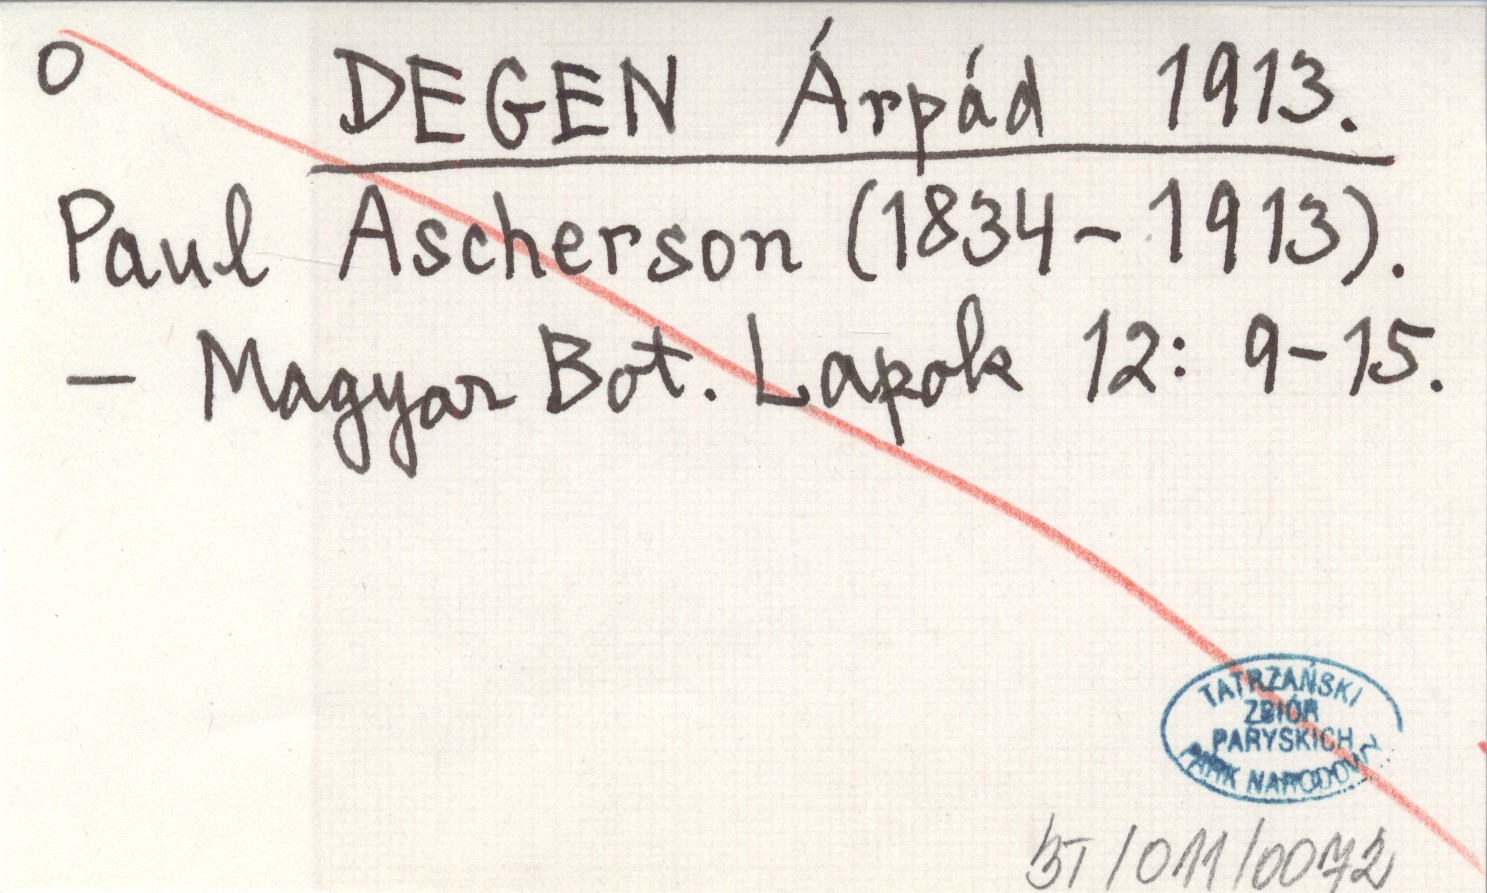 O DEGEN Árpád 1913.
Paul Ascherson (1834-1913).
— Magyar Bot. Lapok 12: 9-15.
TATRZAŃSKI
ZBIÓR
PARYSKICH
PARK NARODOWY
BT/011/0072